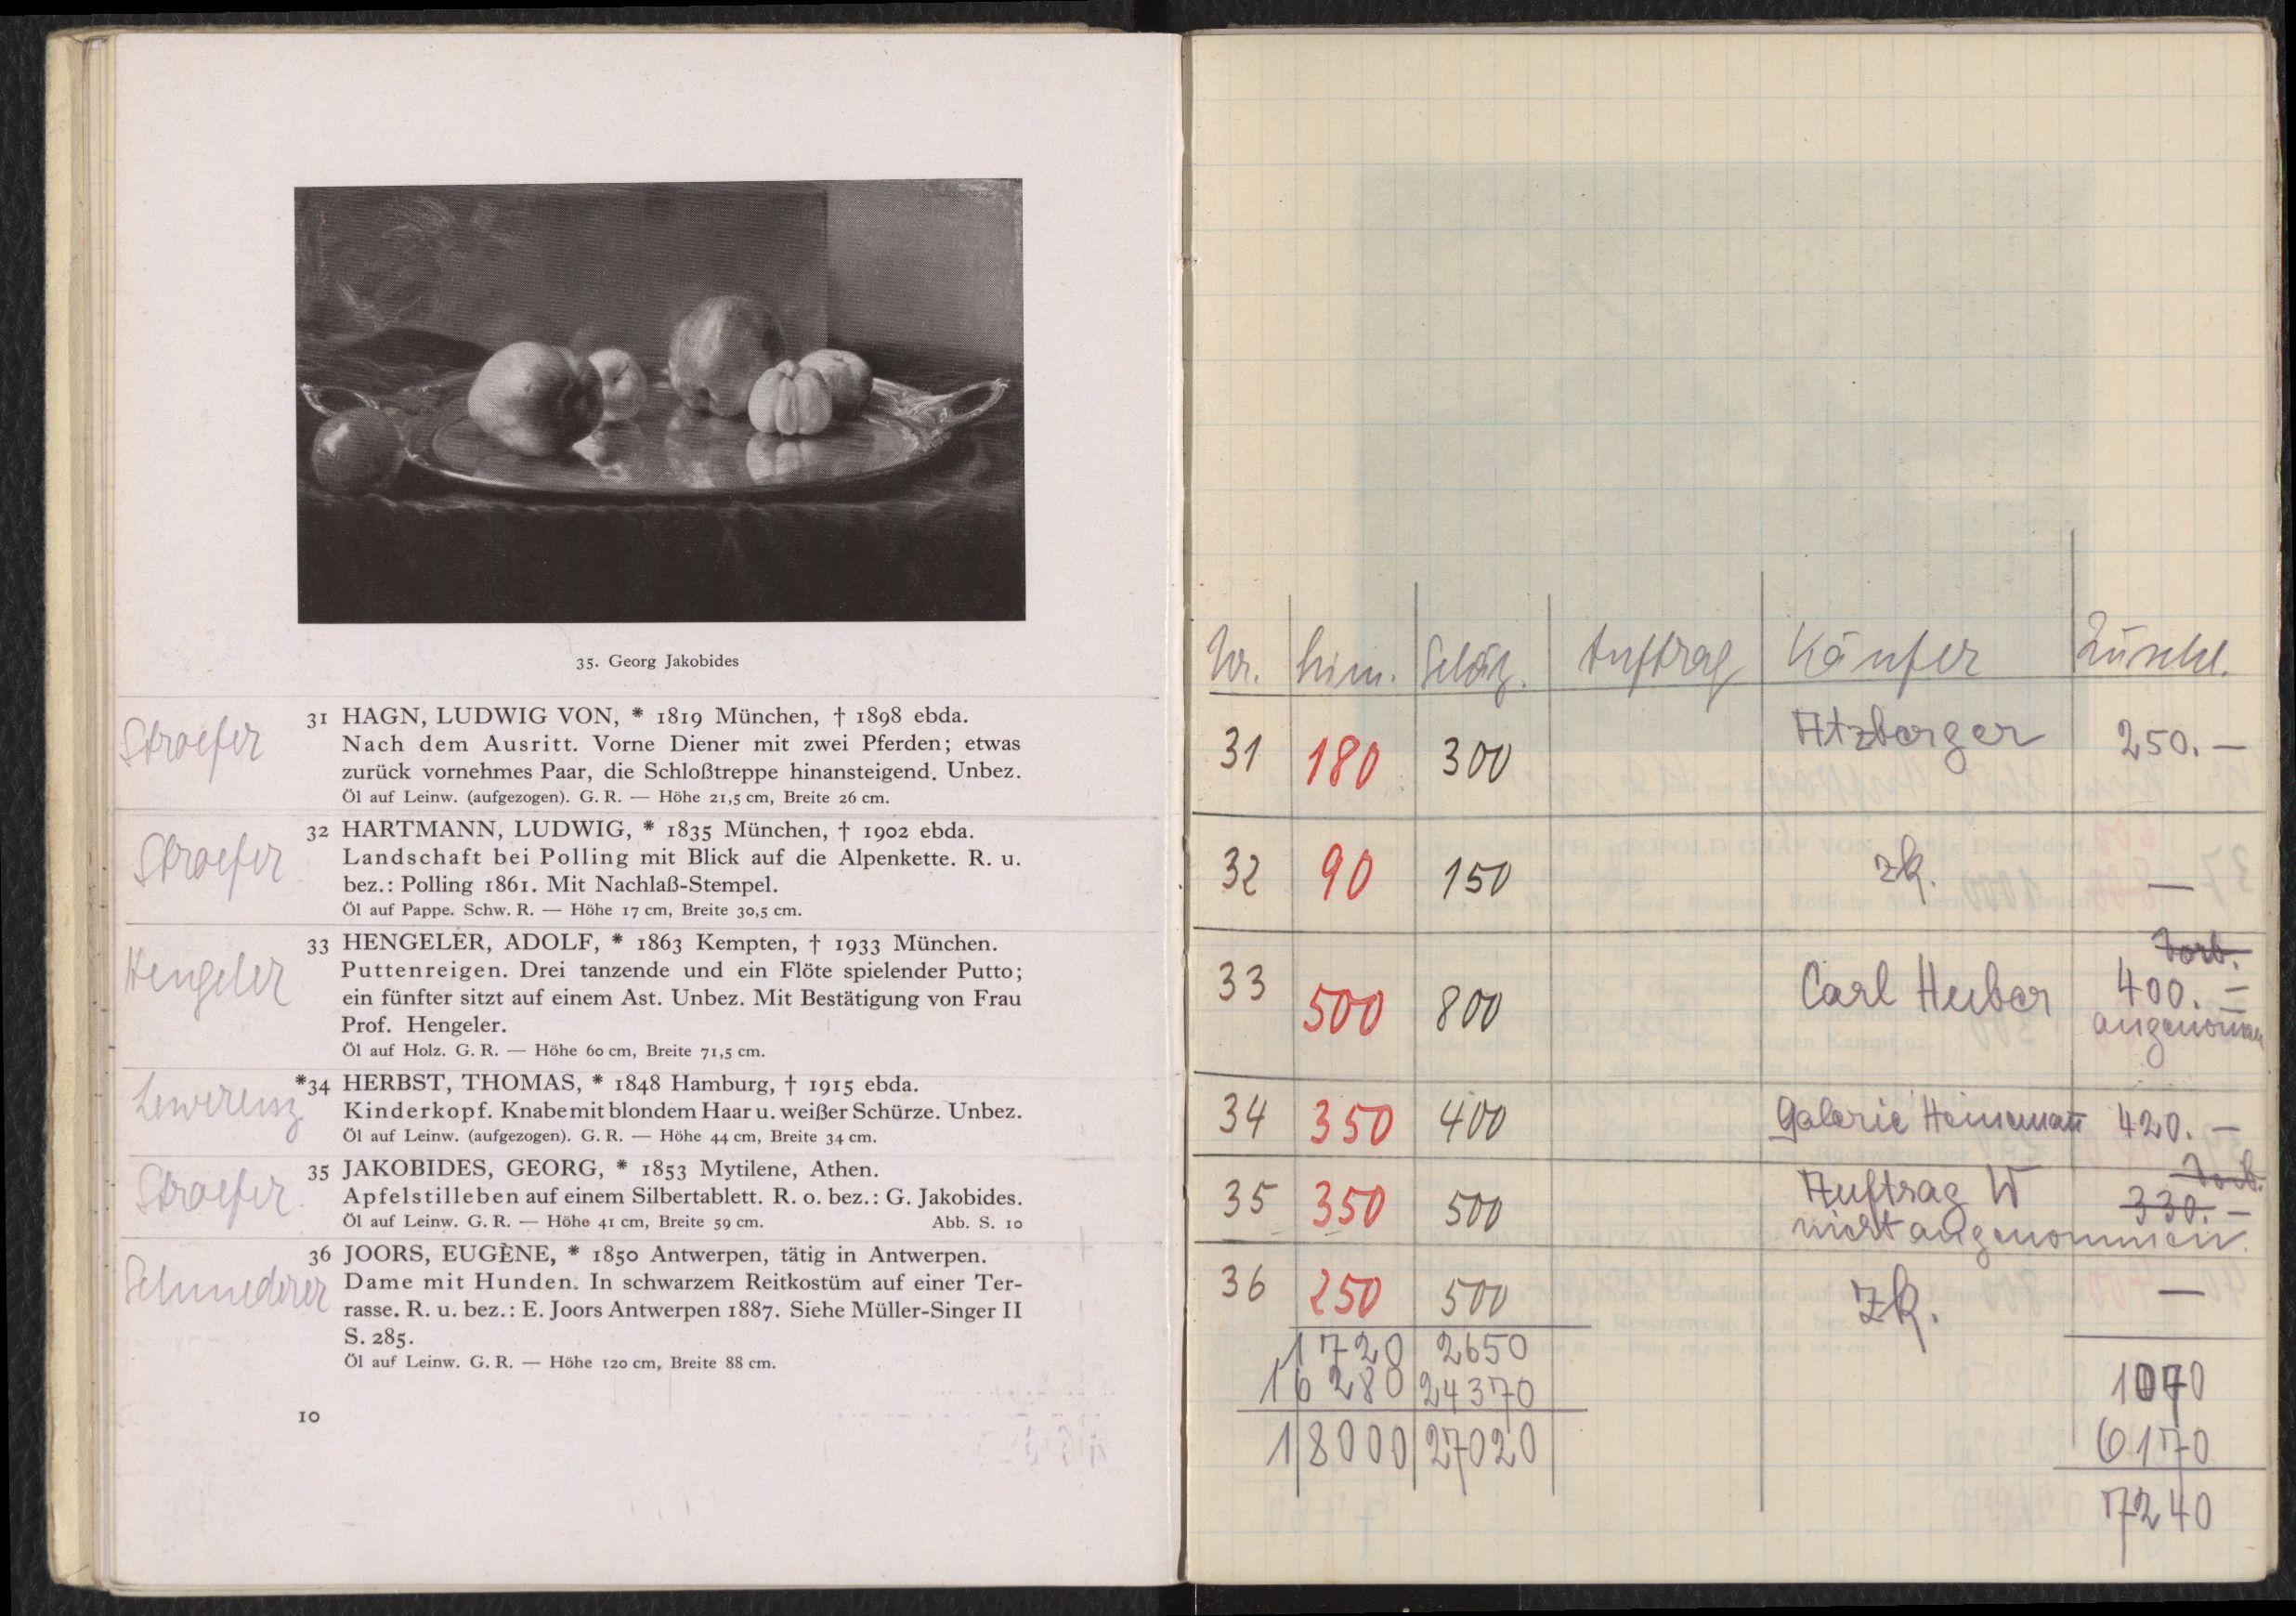 35. Georg Jakobides
Stroefer
31 HAGN, LUDWIG VON, * 1819 München, † 1898 ebda.
Nach dem Ausritt. Vorne Diener mit zwei Pferden; etwas
zurück vornehmes Paar, die Schloßtreppe hinansteigend. Unbez.
Öl auf Leinw. (aufgezogen). G. R. — Höhe 21,5 cm, Breite 26 cm.
Stroefer
32 HARTMANN, LUDWIG, * 1835 München, † 1902 ebda.
Landschaft bei Polling mit Blick auf die Alpenkette. R. u.
bez.: Polling 1861. Mit Nachlaß-Stempel.
Öl auf Pappe. Schw. R. — Höhe 17 cm, Breite 30,5 cm.
Hengeler
33 HENGELER, ADOLF, * 1863 Kempten, † 1933 München.
Puttenreigen. Drei tanzende und ein Flöte spielender Putto;
ein fünfter sitzt auf einem Ast. Unbez. Mit Bestätigung von Frau
Prof. Hengeler.
Öl auf Holz. G. R. — Höhe 60 cm, Breite 71,5 cm.
Lewerenz
*34 HERBST, THOMAS, * 1848 Hamburg, † 1915 ebda.
Kinderkopf. Knabe mit blondem Haar u. weißer Schürze. Unbez.
Öl auf Leinw. (aufgezogen). G. R. — Höhe 44 cm, Breite 34 cm.
Stroefer
35 JAKOBIDES, GEORG, * 1853 Mytilene, Athen.
Apfelstilleben auf einem Silbertablett. R. o. bez.: G. Jakobides.
Öl auf Leinw. G. R. — Höhe 41 cm, Breite 59 cm. Abb. S. 10
Schmederer
36 JOORS, EUGÈNE, * 1850 Antwerpen, tätig in Antwerpen.
Dame mit Hunden. In schwarzem Reitkostüm auf einer Ter-
rasse. R. u. bez.: E. Joors Antwerpen 1887. Siehe Müller-Singer II
S. 285.
Öl auf Leinw. G. R. — Höhe 120 cm, Breite 88 cm.
10
Nr. Lim. Schätz. Auftrag Käufer Zuschl.
31 180 300 Atzberger 250. —
32 90 150 zk. —
Vorb.
33 500 800 Carl Huber 400. —
angenommen
34 350 400 Galerie Heinemann 420. —
Vorb.
35 350 500 Auftrag W 330. —
nicht angenommen.
36 250 500 zk. —
1720 2650
16280 24370 1070
18000 27020 6170
7240